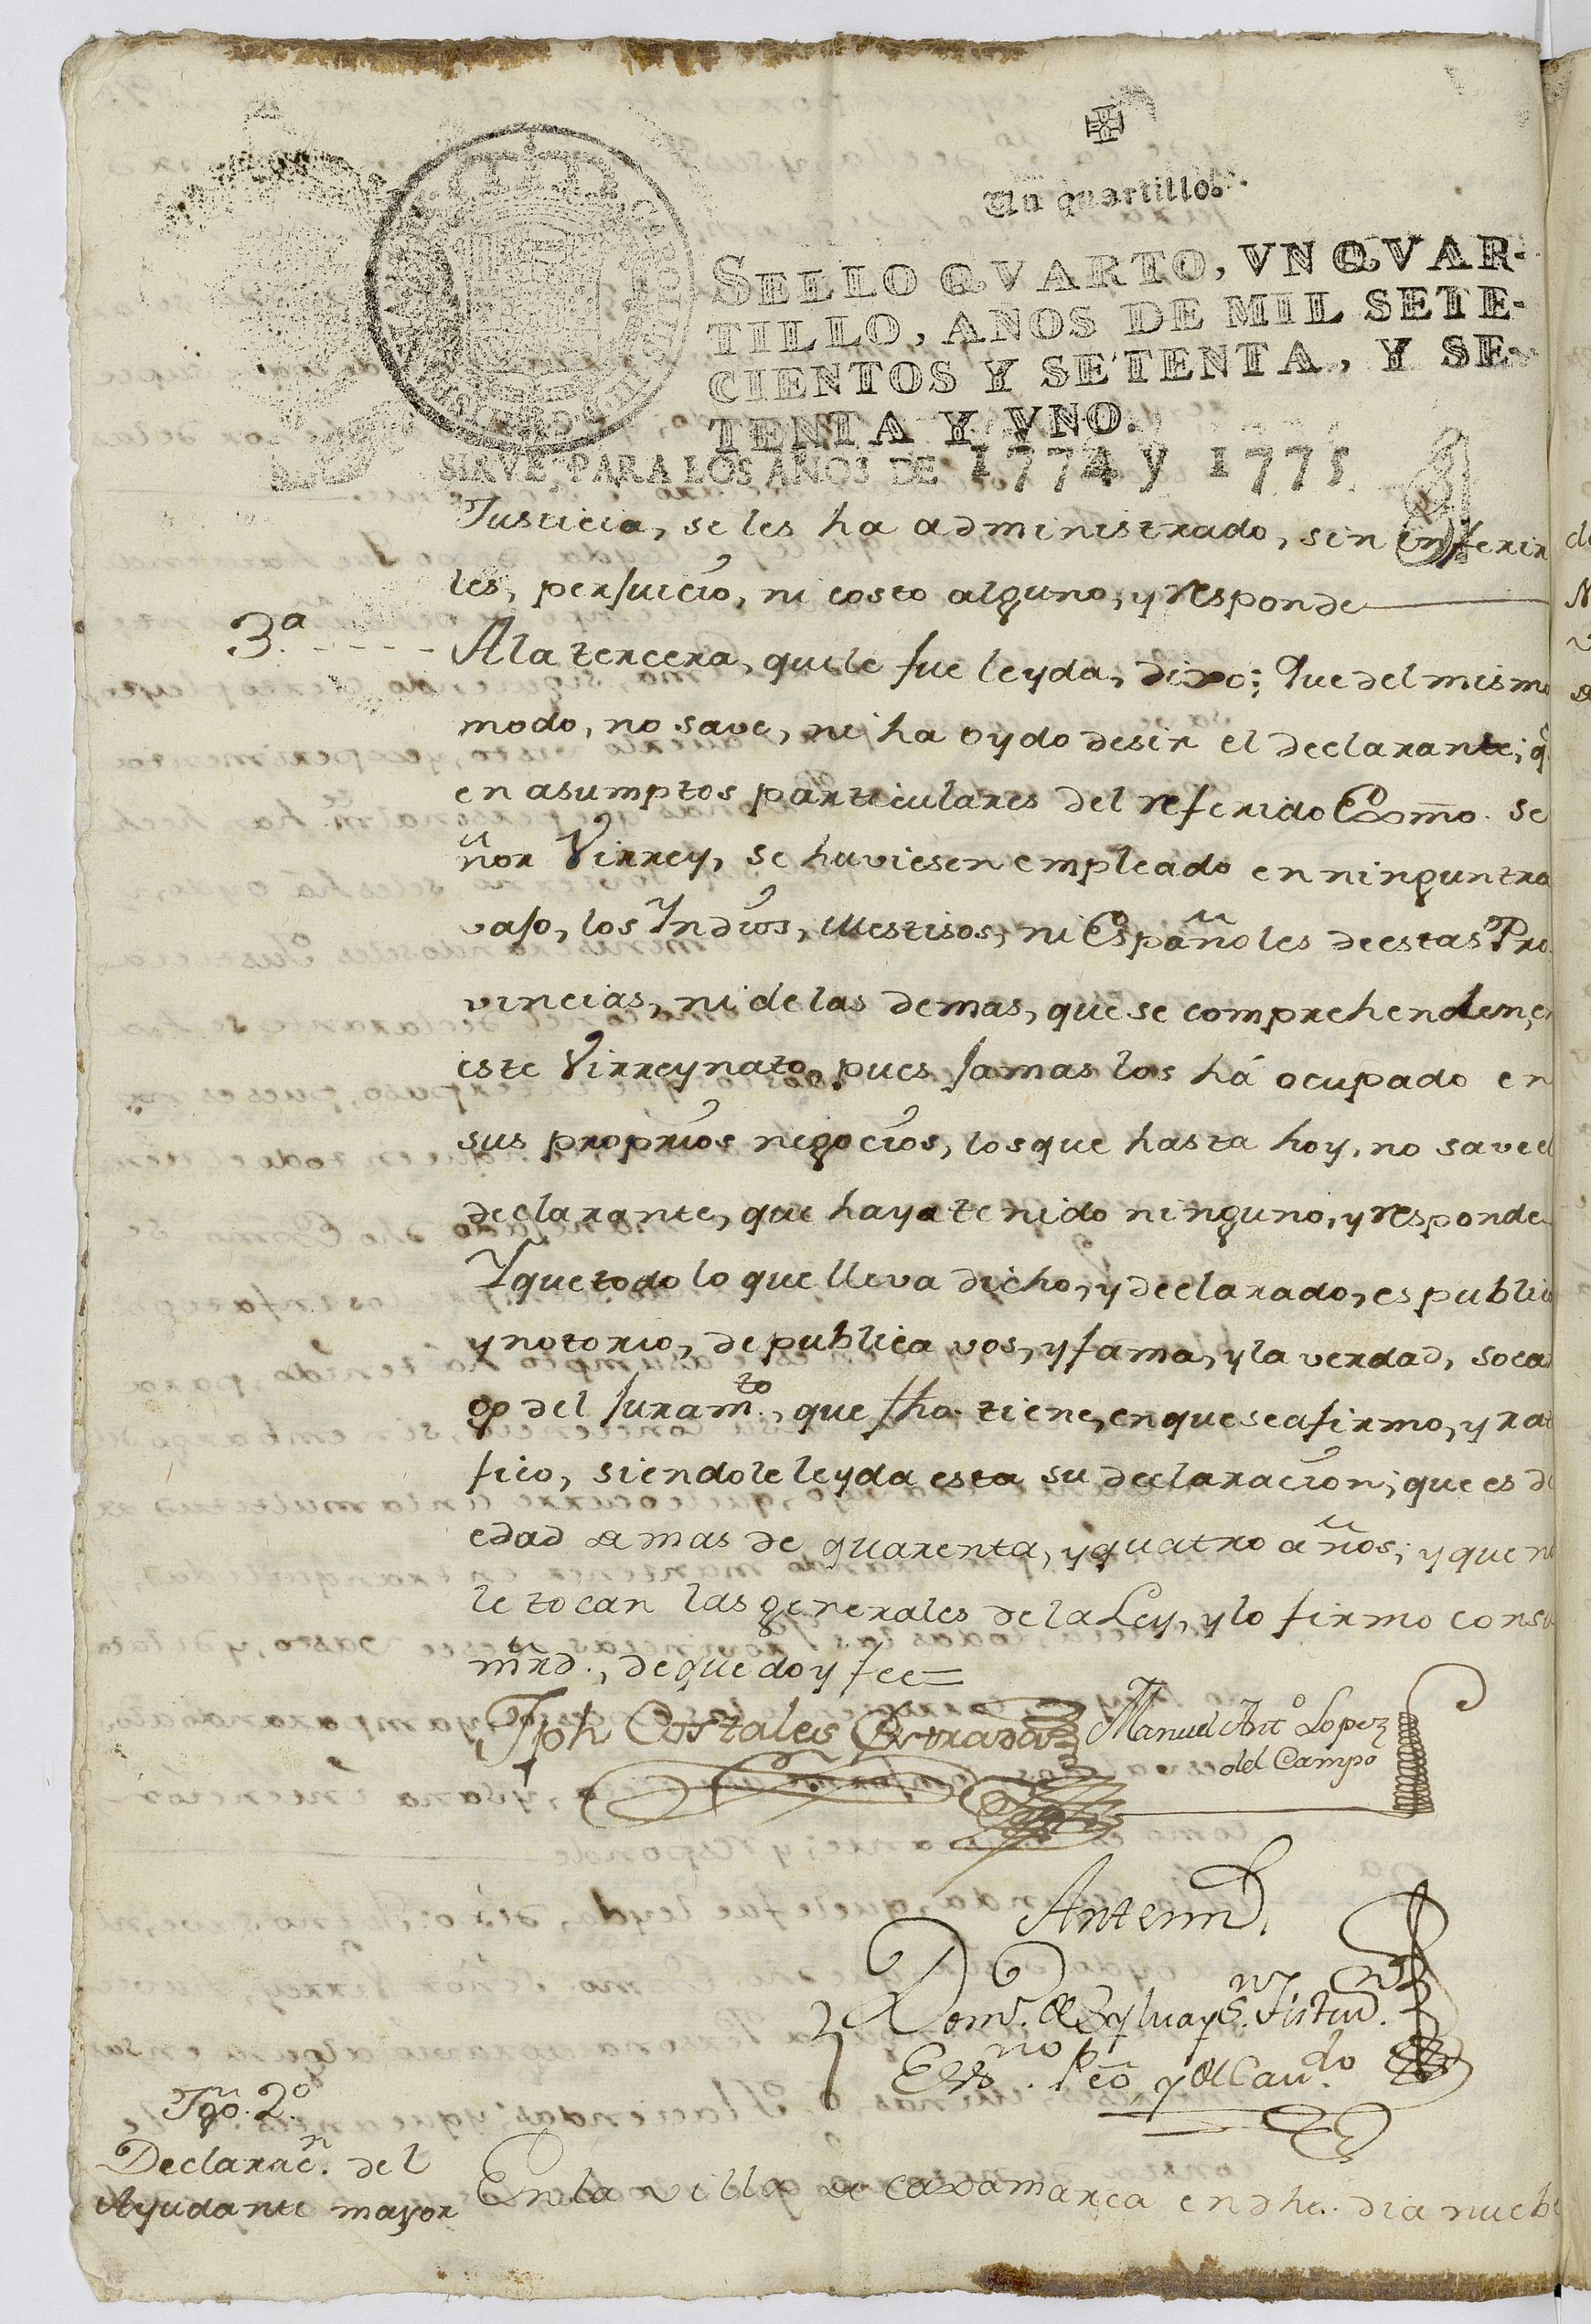 Un quartillo.
SELLO QVARTO, VN QVAR-
TILLO, AÑOS DE MIL SETE-
CIENTOS Y SETENTA, Y SE-
TENTA Y VNO.
SIRVE PARA LOS AÑOS DE 1774 y 1775
Justicia, se les ha administrado, sin inferir
les, perjuicio, ni costo alguno, y responde
3ª
A la tercera, que le fue leyda, dixo: Que del mismo
modo, no save, ni ha oydo desir el declarante; q̃
en asumptos particulares del referido Exm̃o. Se
ñor Virrey, se huviesen empleado en ningun tra
vajo, los Yndios, Mestisos, ni Españoles de estas Pro
vincias, ni de las demas, que se comprehenden, en
este Virreynato, pues jamas los há ocupado en
sus proprios negocios, los que hasta hoy, no save el
declarante, que haya tenido ninguno, y responde
Y que todo lo que lleva dicho, y declarado, es publico
y notorio, de publica vos, y fama, y la verdad, so car
go del juramto., que fho tiene, en que se afirmo, y rati
fico, siendole leyda esta su declaracion; que es de
edad de mas de quarenta, y quatro años; y que no
le tocan las generales de la Ley, y lo firmo con su
mrd., de que doy fee=
Jph Costales Estrada
Manuel Antº Lopez
del Campo
Antemi
Domº. de Sylva y
Essno. Pcõ y de Cavdo
Tgõ. 2º.
Declaracn. del
Ayudante mayor
En la villa de Caxamarca en dho. dia nuebe